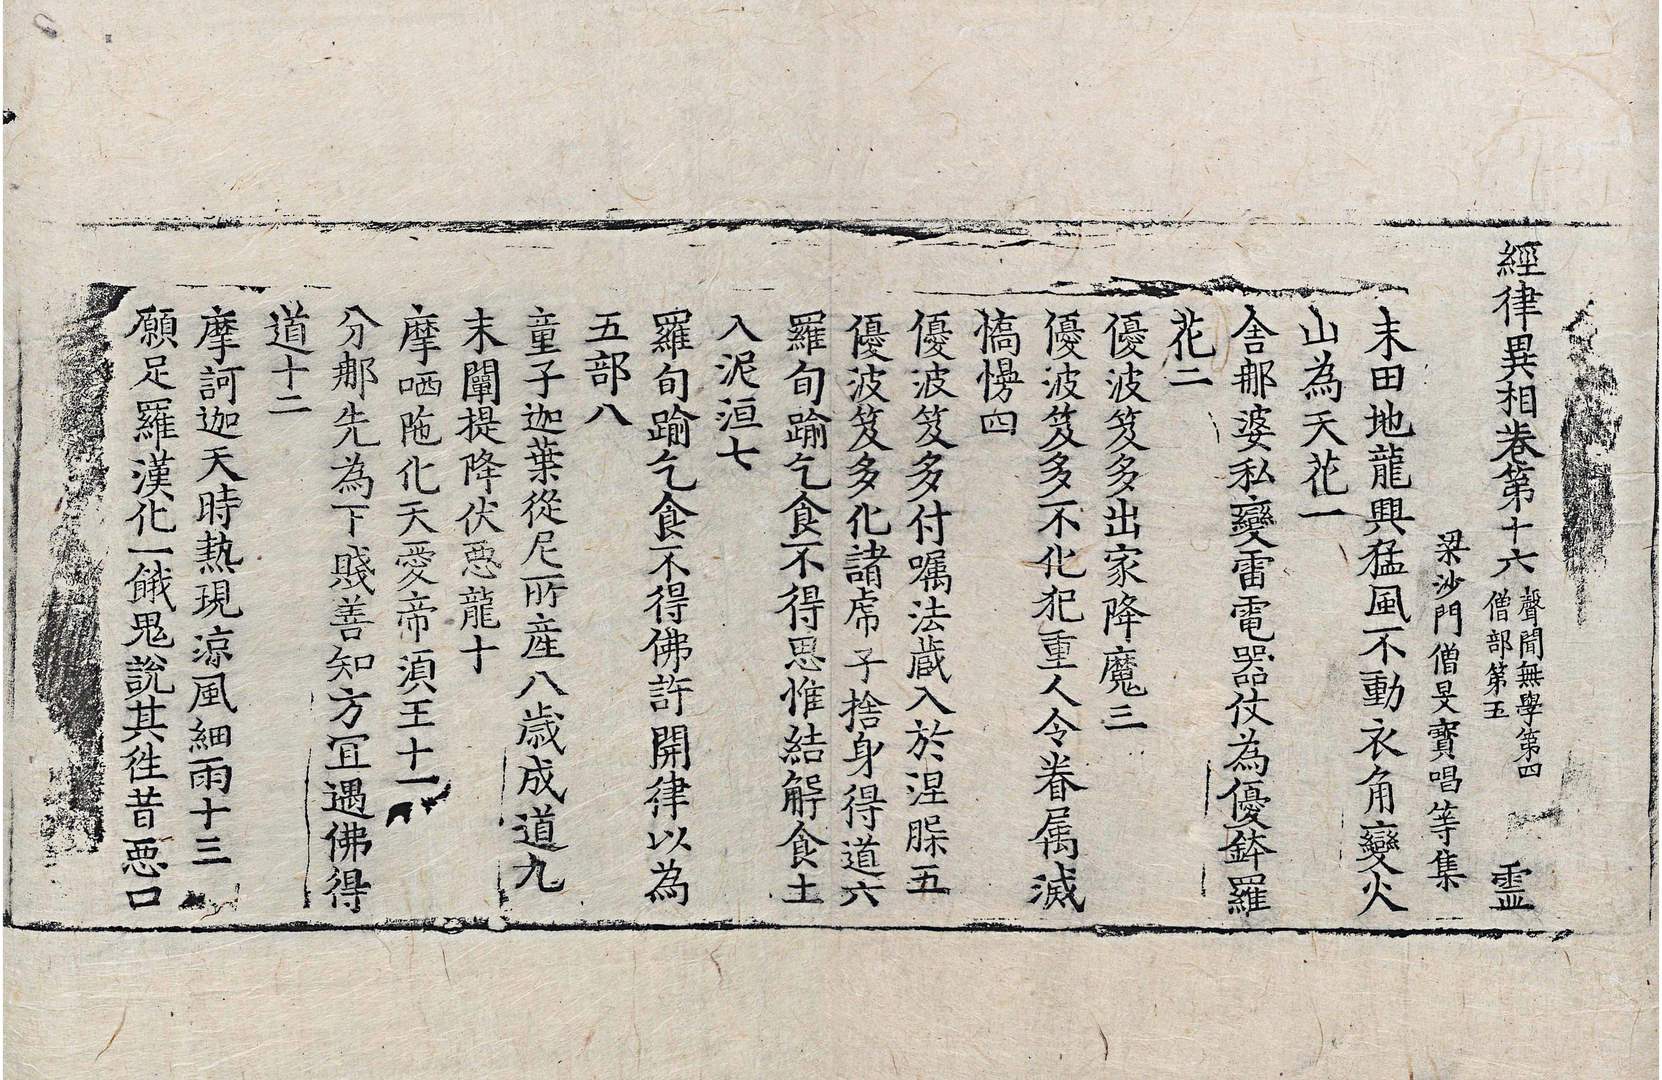 經律異相卷第十六 聲聞無學第四 僧部第五 靈
梁沙門僧旻寶唱等集
末田地龍興猛風不動衣角變火
山為天花一
舍那婆私變雷電器仗為優鉢羅
花二
優波笈多出家降魔三
優波笈多不化犯重人令眷属滅
憍慢四
優波笈多付嘱法蔵入於涅槃五
優波笈多化諸虎子捨身得道六
羅旬踰乞食不得思惟結解食土
入泥洹七
羅旬踰乞食不得佛許開律以為
五部八
童子迦葉從尼所産八歳成道九
末闡提降伏惡龍十
摩哂陁化天愛帝湏王十一
分那先為下賤善知方冝遇佛得
道十二
摩訶迦天時熱現涼風細雨十三
願足羅漢化一餓鬼說其徃昔惡口